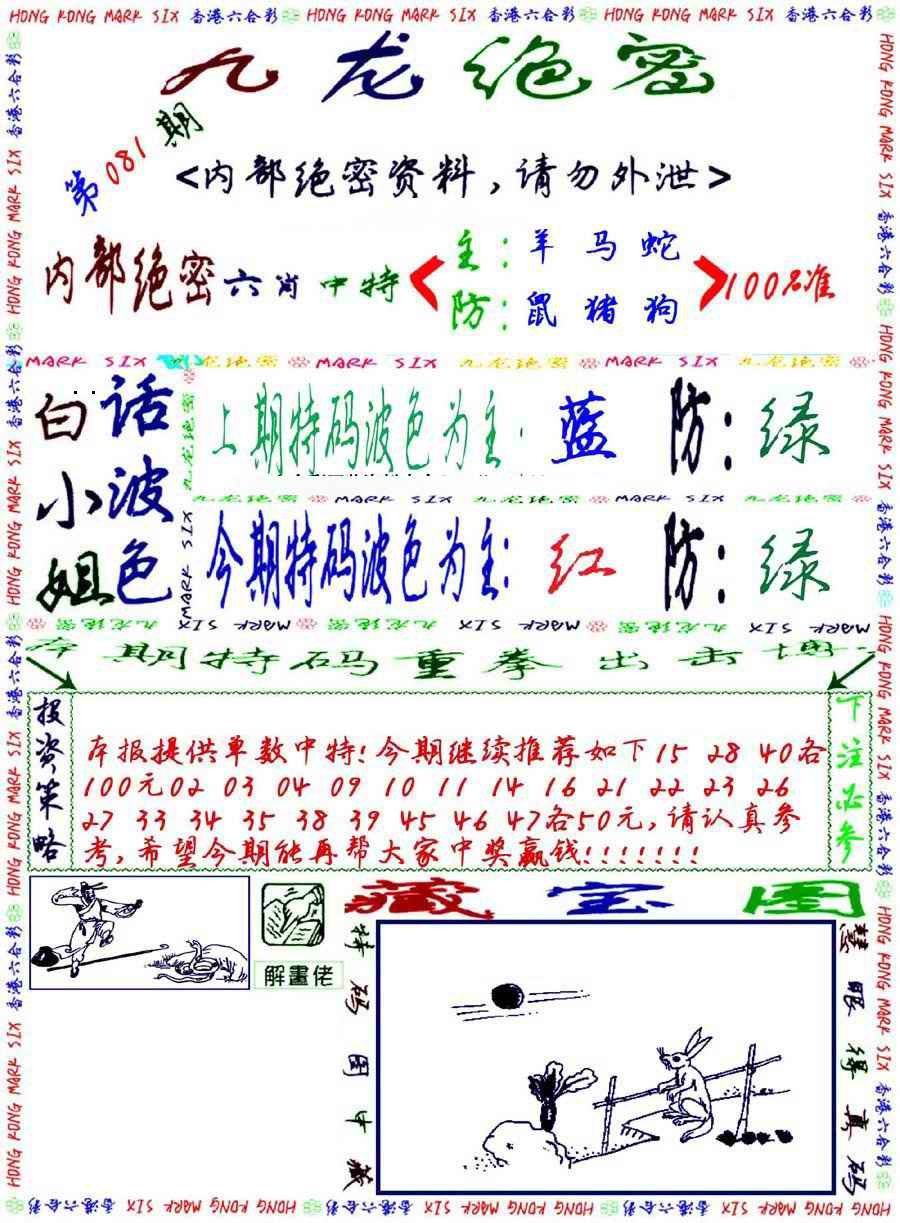 HONG KONG MARK SIX 香港六合彩 HONG KONG MARK SIX 香港六合彩 HONG KONG MARK SIX 香港六合彩
九龙绝密
第081期
<内部绝密资料,请勿外泄>
内部绝密六肖中特
主:羊 马 蛇
防:鼠 猪 狗
100%准
MARK SIX 九龙绝密 MARK SIX 九龙绝密 MARK SIX 九龙绝密
白话
小波
姐色
上期特码波色为主:蓝 防:绿
九龙绝密 MARK SIX 九龙绝密 MARK SIX 九龙绝密
今期特码波色为主:红 防:绿
九龙绝密 MARK SIX 九龙绝密 MARK SIX 九龙绝密 MARK SIX
本期特码重拳出击
报资策略
本报提供单数中特!今期继续推荐如下15 28 40各
100元02 03 04 09 10 11 14 16 21 22 23 26
27 33 34 35 38 39 45 46 47各50元,请认真参
考,希望今期能再帮大家中奖赢钱!!!!!!!
下注必参
解畫佬
藏宝图
特码图中藏
慧眼得真码
HONG KONG MARK SIX 香港六合彩 HONG KONG MARK SIX 香港六合彩 HONG KONG MARK SIX 香港六合彩